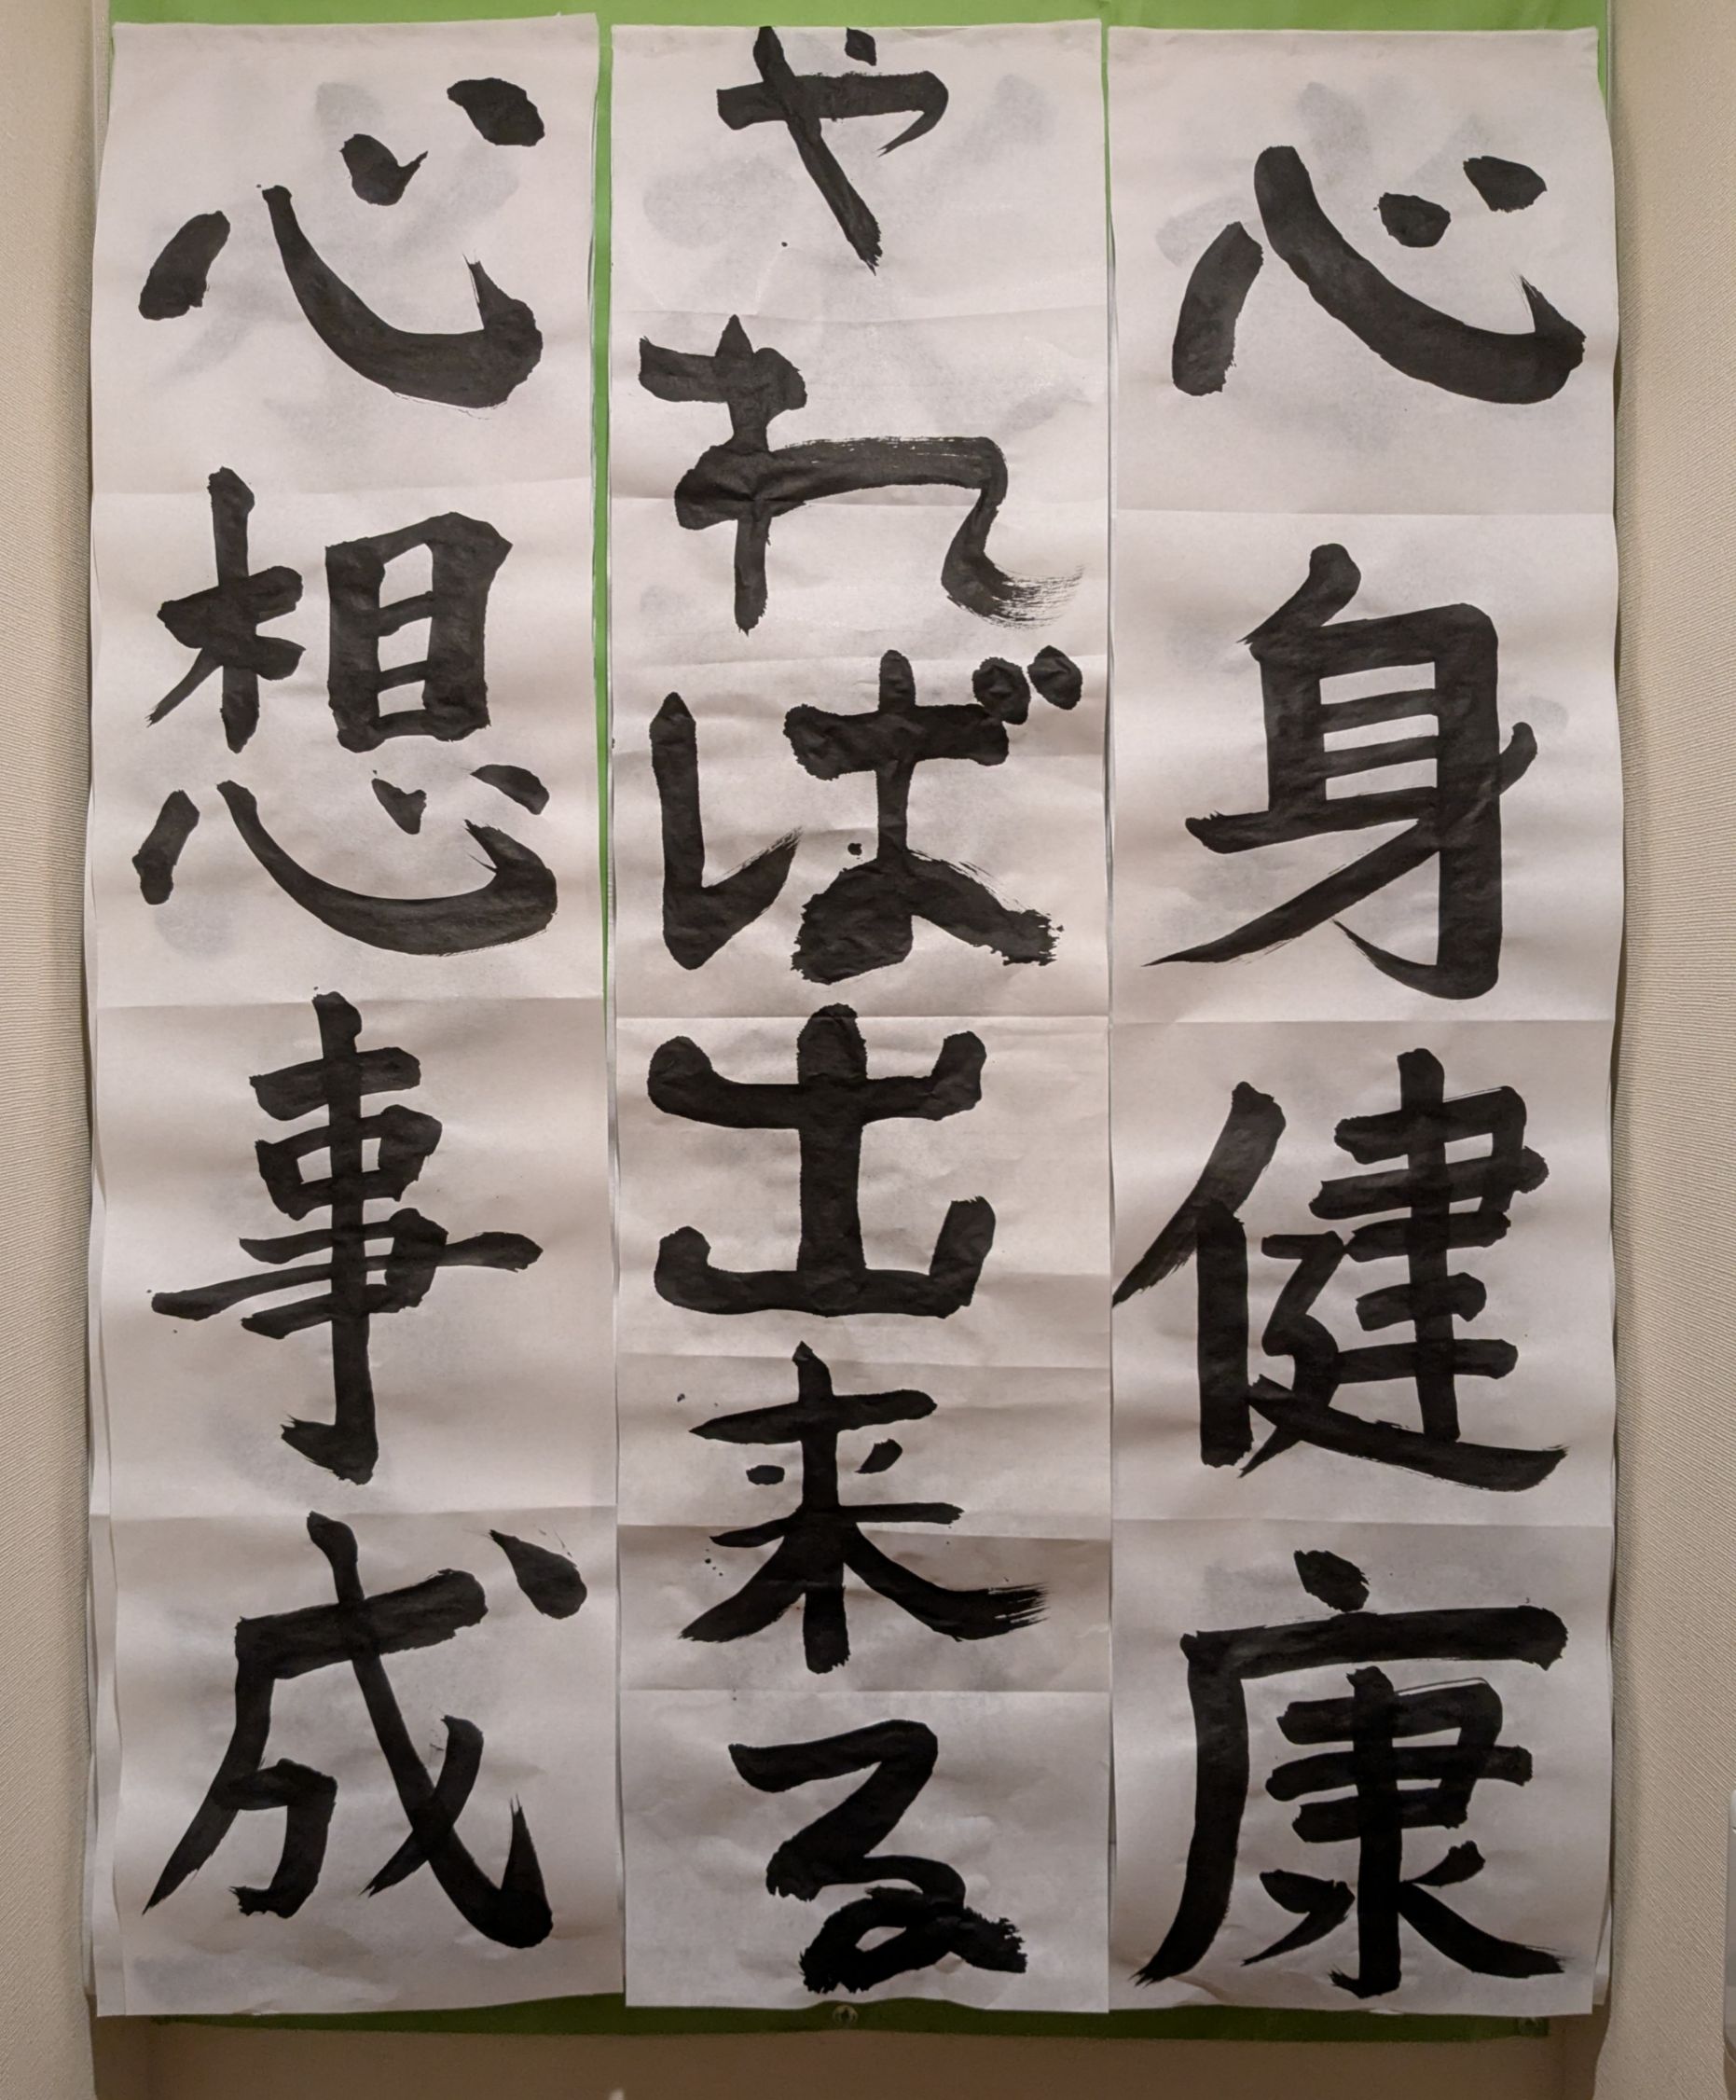 心身健康
やれば出来る
心想事成